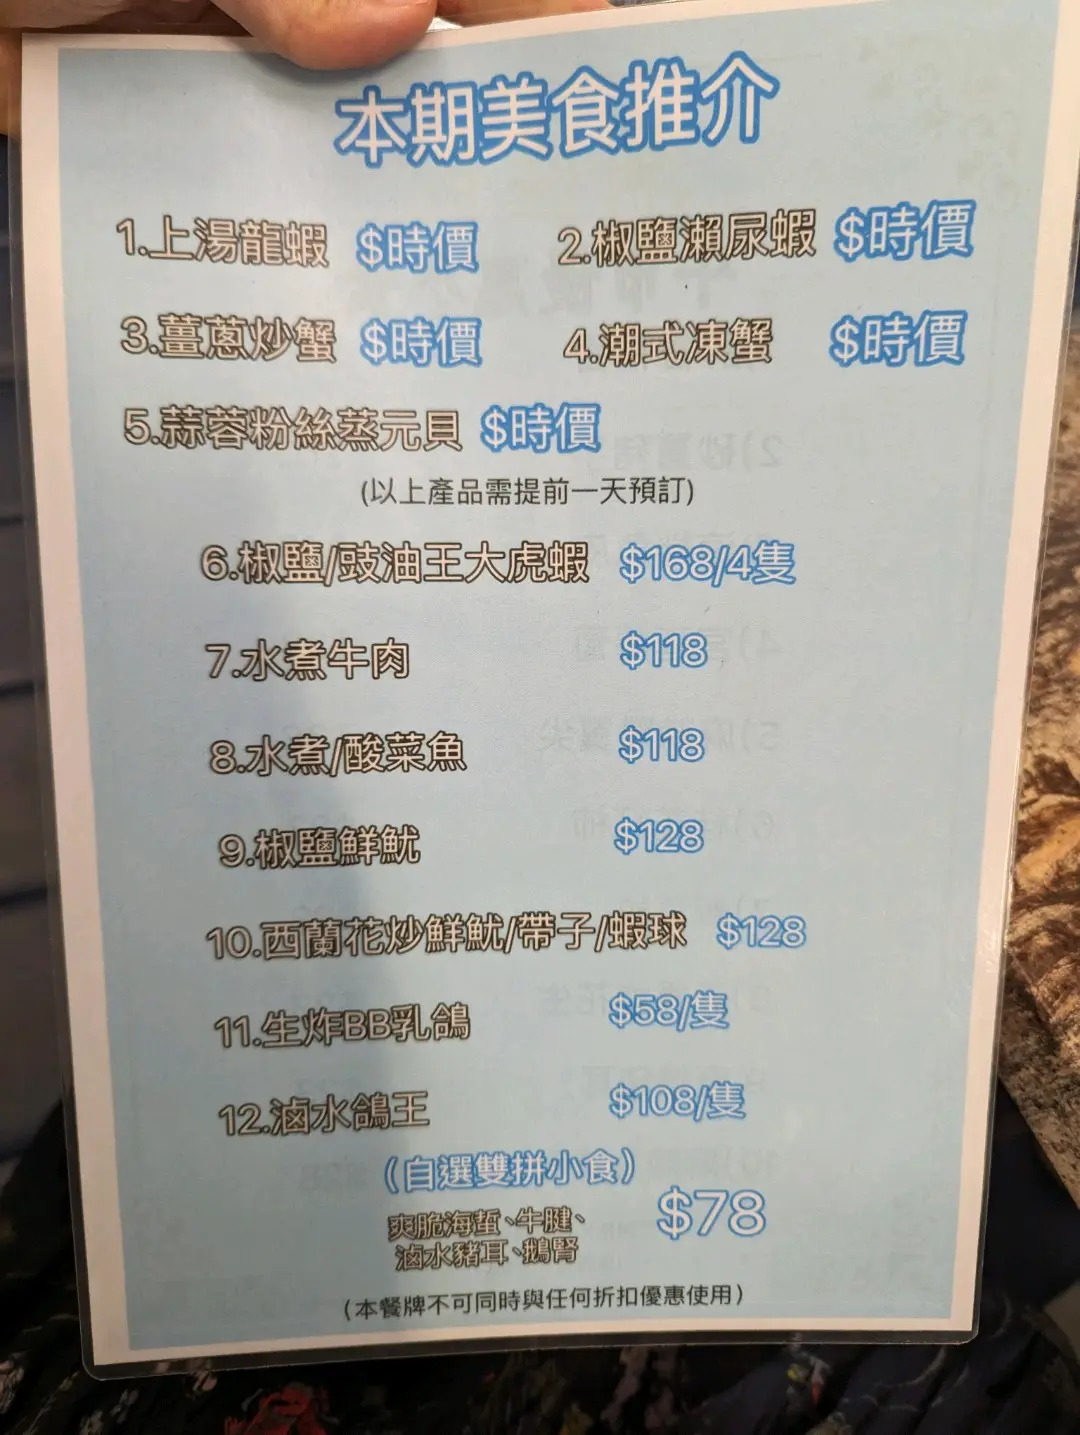 本期美食推介
1.上湯龍蝦 $時價 2.椒鹽瀨尿蝦 $時價
3.薑蔥炒蟹 $時價 4.潮式凍蟹 $時價
5.蒜蓉粉絲蒸元貝 $時價
(以上產品需提前一天預訂)
6.椒鹽/豉油王大虎蝦 $168/4隻
7.水煮牛肉 $118
8.水煮/酸菜魚 $118
9.椒鹽鮮魷 $128
10.西蘭花炒鮮魷/帶子/蝦球 $128
11.生炸BB乳鴿 $58/隻
12.滷水鴿王 $108/隻
(自選雙拼小食)
爽脆海蜇、牛腱、 $78
滷水豬耳、鵝腎
(本餐牌不可同時與任何折扣優惠使用)